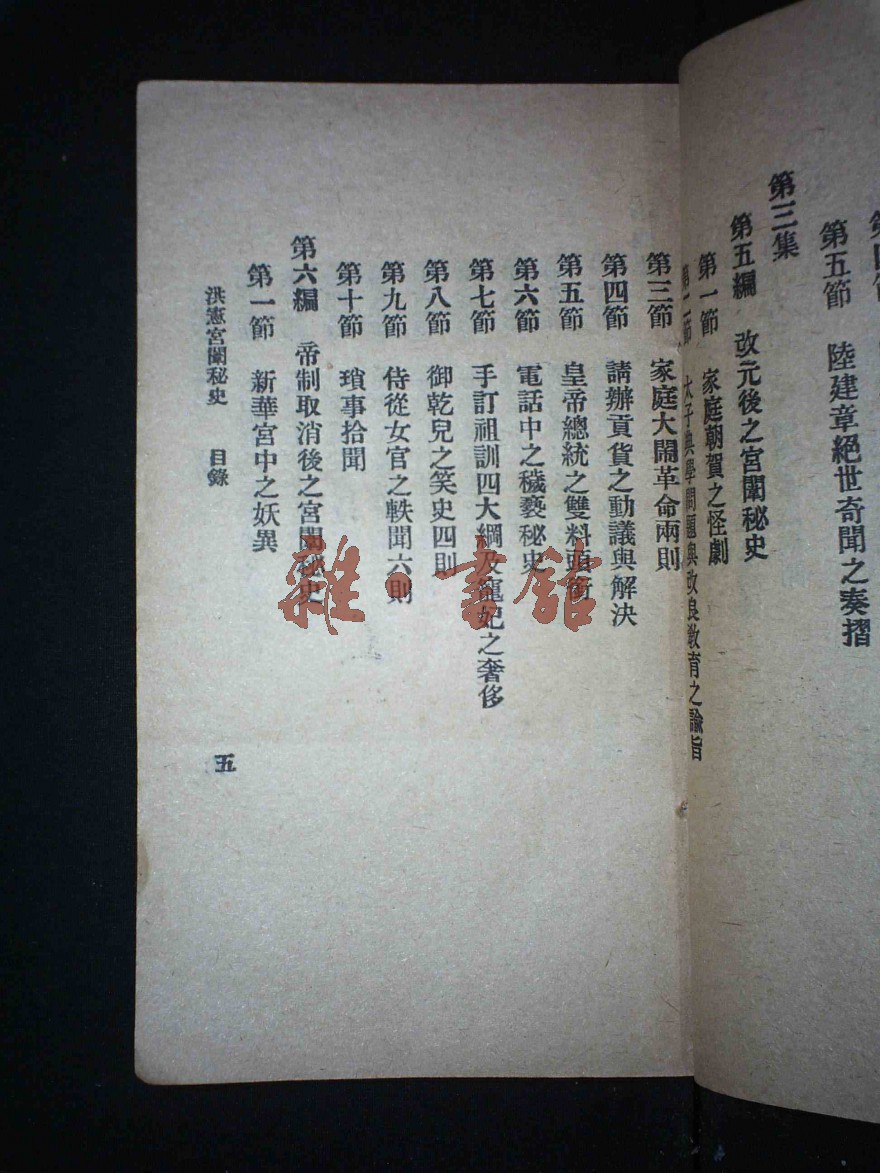 第五節　陸建章絕世奇聞之奏摺
第三集
第五編　改元後之宮闈秘史
第一節　家庭朝賀之怪劇
第二節　太子典學問題與改良教育之諭旨
第三節　家庭大鬧革命兩則
第四節　請辦貢貨之動議與解決
第五節　皇帝總統之雙料頭銜
第六節　電話中之穢褻秘史
第七節　手訂祖訓四大綱及寵妃之奢侈
第八節　御乾兒之笑史四則
第九節　侍從女官之軼聞六則
第十節　瑣事拾聞
第六編　帝制取消後之宮闈秘史
第一節　新華宮中之妖異
洪憲宮闈秘史　目錄
五
雜·書館